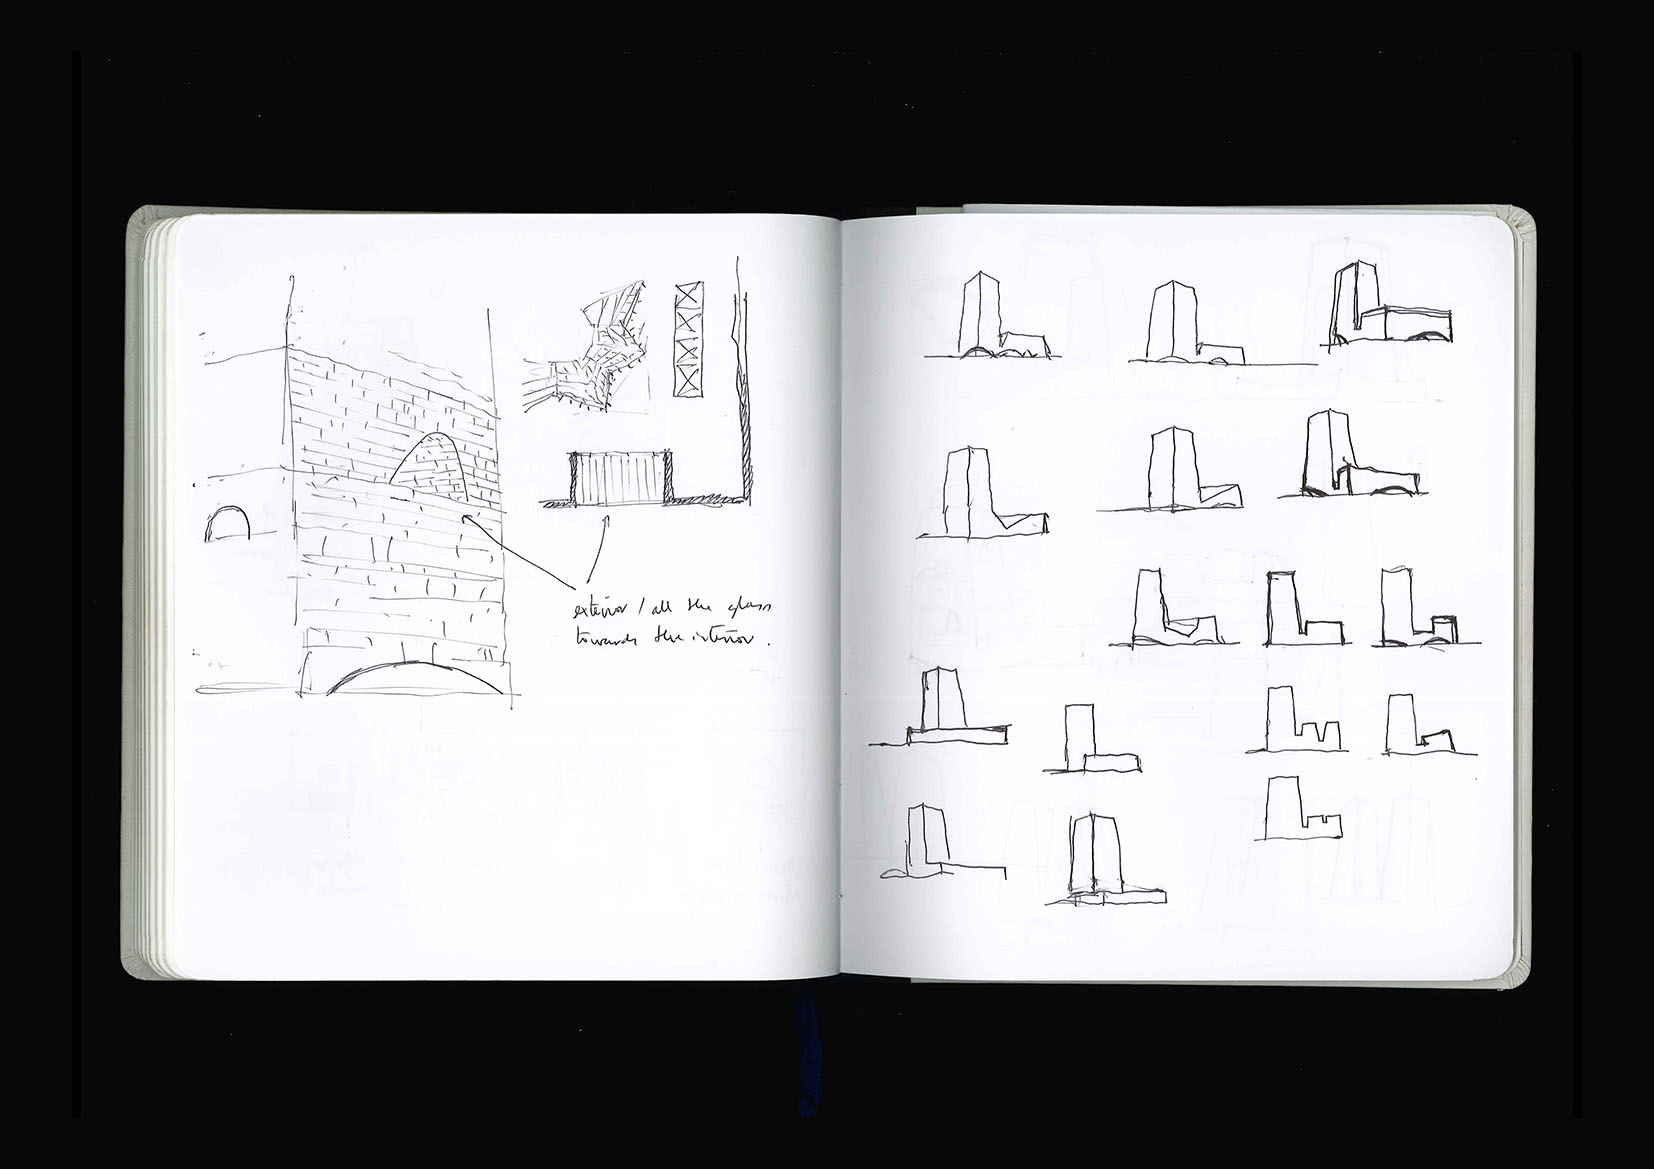 exterior / all the glass
towards the interior.